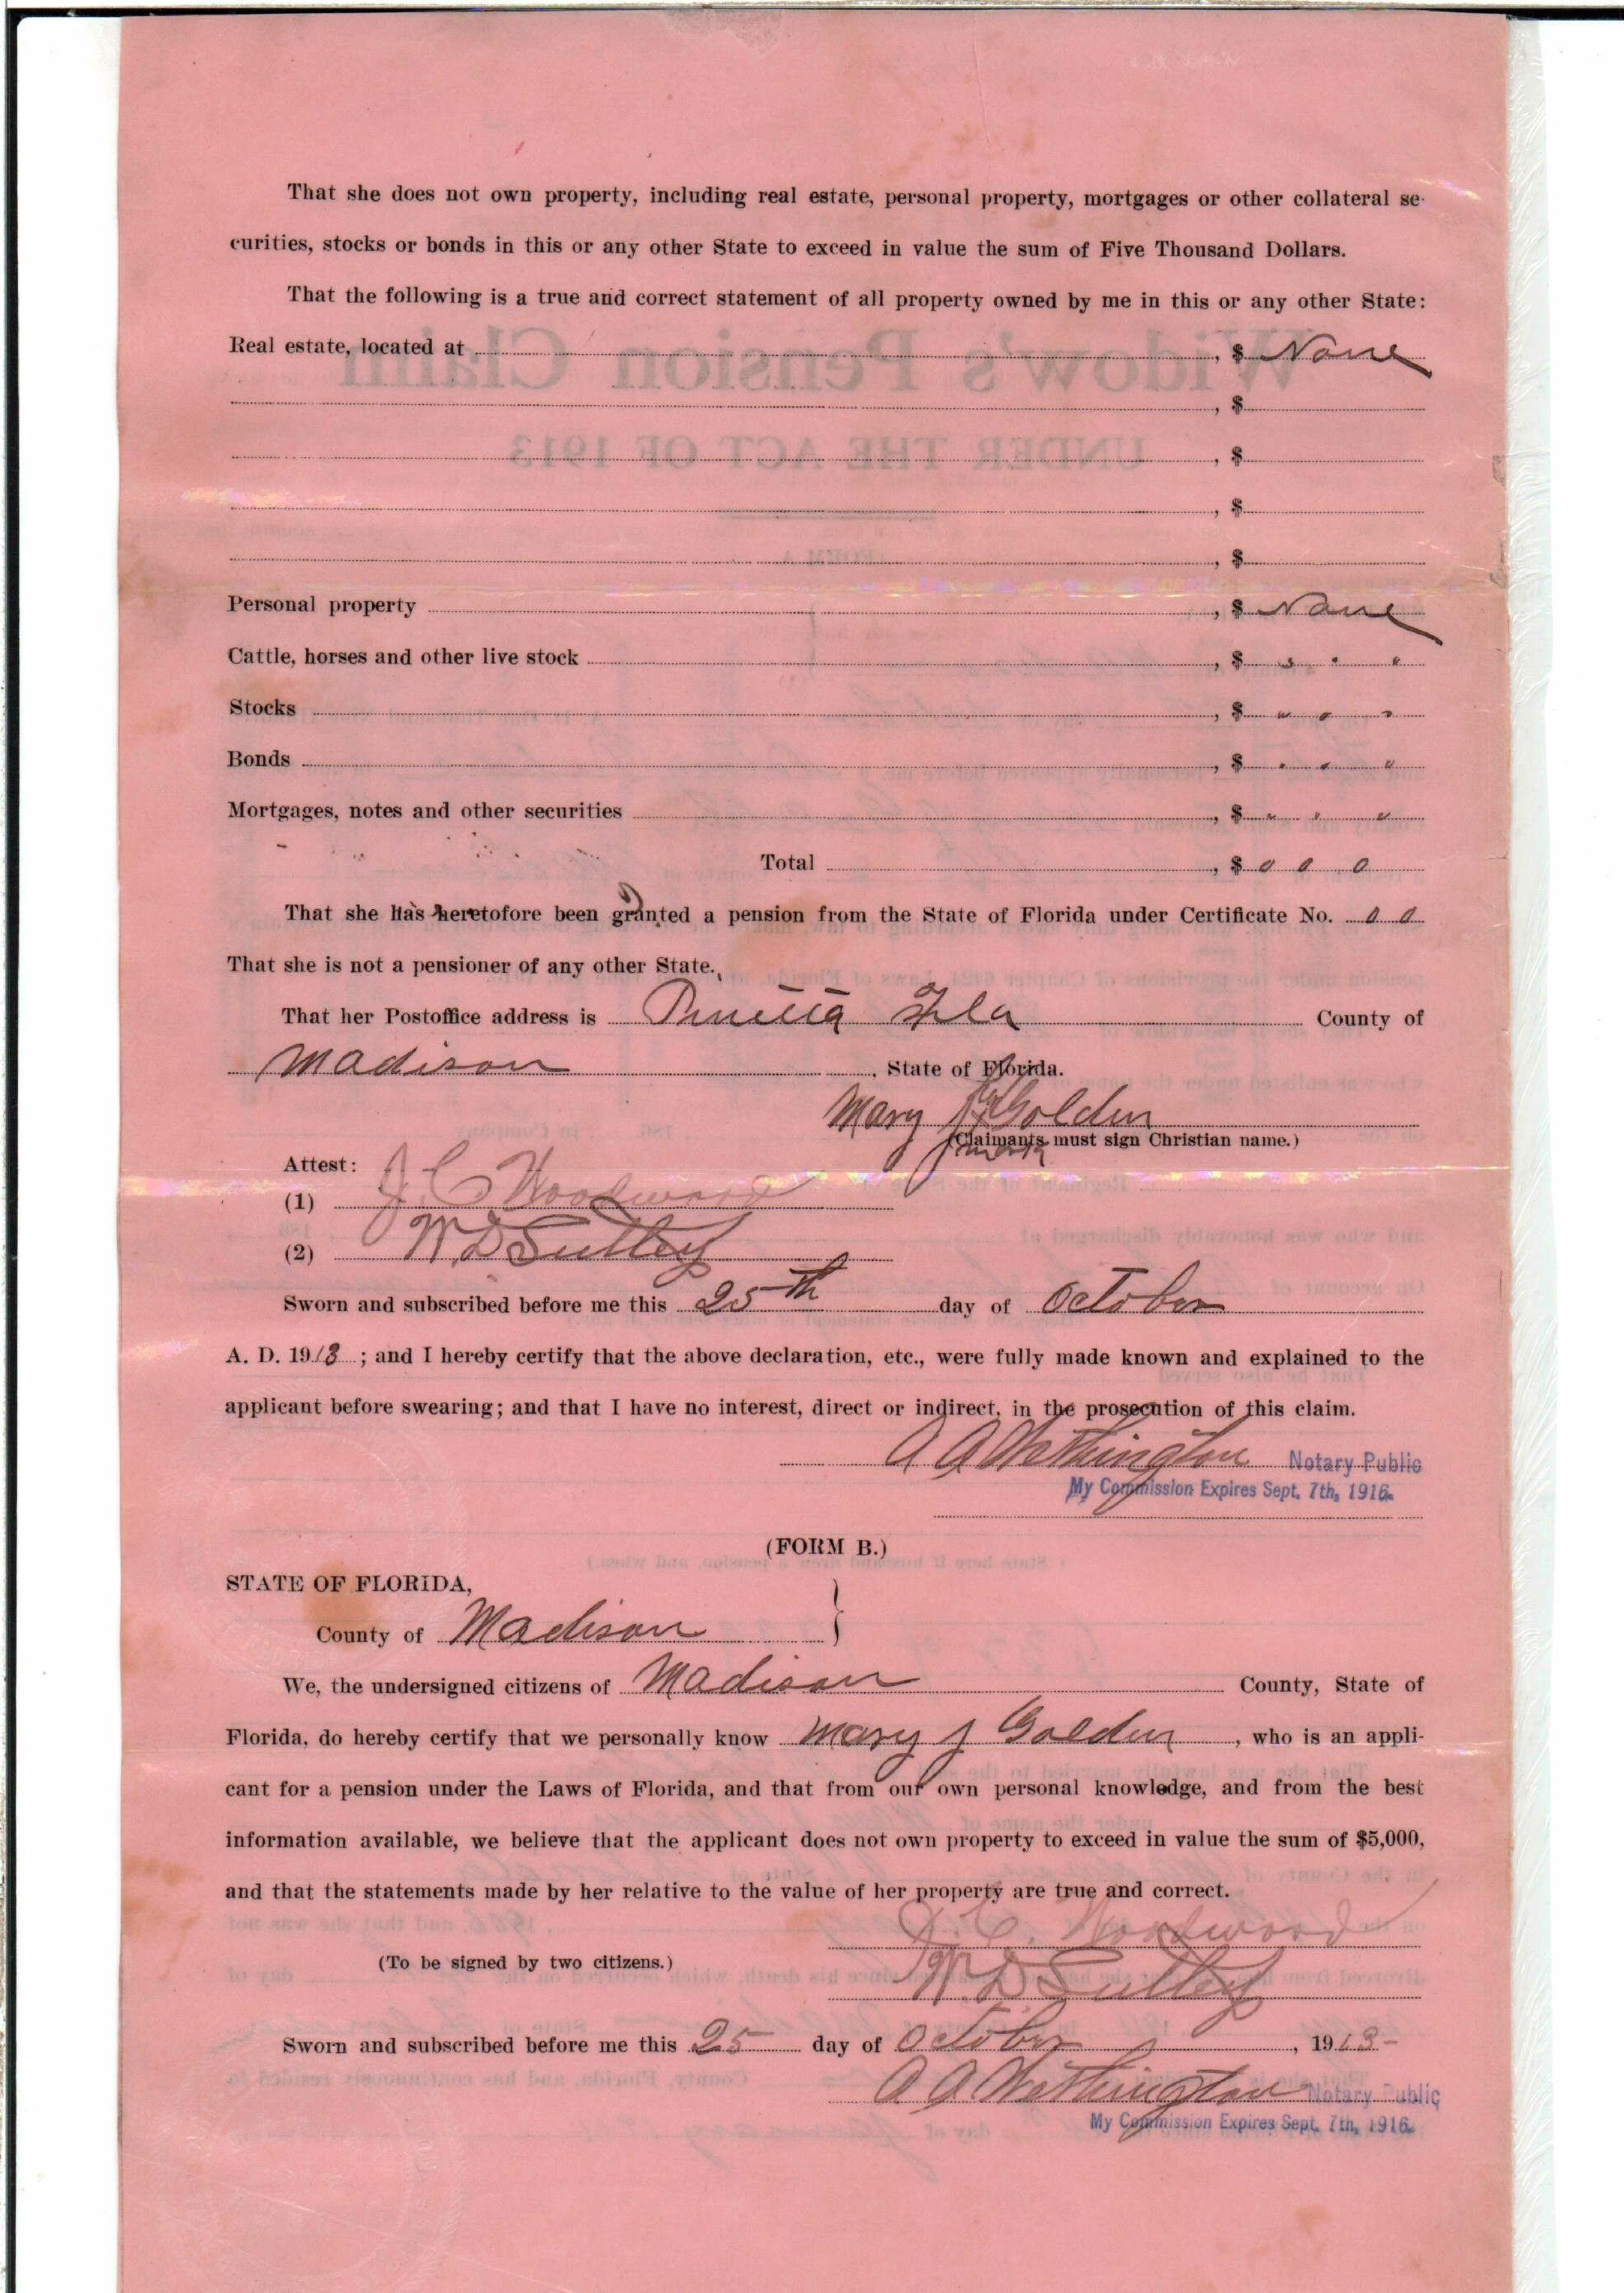 That she does not own property, including real estate, personal property, mortgages or other collateral se-
curities, stocks or bonds in this or any other State to exceed in value the sum of Five Thousand Dollars.
That the following is a true and correct statement of all property owned by me in this or any other State:
Real estate, located at , $ None
, $
, $
, $
, $
Personal property , $ None
Cattle, horses and other live stock , $ " " "
Stocks , $ " " "
Bonds , $ " " "
Mortgages, notes and other securities , $ " " "
Total , $ 0 0 0
That she has heretofore been granted a pension from the State of Florida under Certificate No. 0 0
That she is not a pensioner of any other State.
That her Postoffice address is Pinetta Fla County of
Madison , State of Florida.
Mary J Golden
(Claimants must sign Christian name.)
mark
Attest:
(1) J. C. Woodward
(2) W. D. Sulley
Sworn and subscribed before me this 25th day of October
A. D. 1913 ; and I hereby certify that the above declaration, etc., were fully made known and explained to the
applicant before swearing; and that I have no interest, direct or indirect, in the prosecution of this claim.
A A Wethington Notary Public
My Commission Expires Sept. 7th, 1916.
(FORM B.)
STATE OF FLORIDA,
County of Madison }
We, the undersigned citizens of Madison County, State of
Florida, do hereby certify that we personally know Mary J Golden , who is an appli-
cant for a pension under the Laws of Florida, and that from our own personal knowledge, and from the best
information available, we believe that the applicant does not own property to exceed in value the sum of $5,000,
and that the statements made by her relative to the value of her property are true and correct.
J. C. Woodward
(To be signed by two citizens.)
W. D. Sulley
Sworn and subscribed before me this 25 day of October , 1913-
A A Wethington Notary Public
My Commission Expires Sept. 7th, 1916.